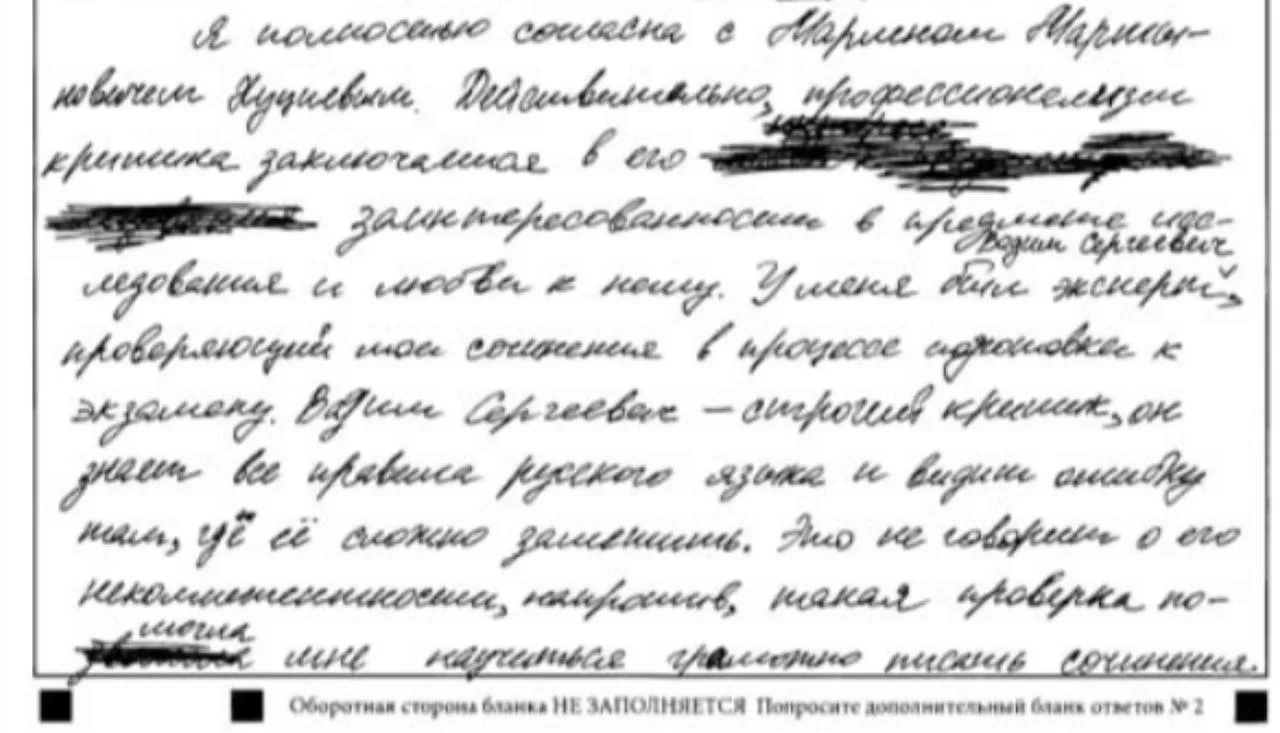 Я полностью согласна с Марленом Марты-
новичем Хуциевым. Действительно, профессионализм
критика заключается в его
заинтересованности в предмете исс-
Вадим Сергеевич
ледования и любви к нему. У меня был эксперт,
проверяющий мои сочинения в процессе подготовки к
экзамену. Вадим Сергеевич – строгий критик, он
знает все правила русского языка и видит ошибку
там, где её сложно заметить. Это не говорит о его
некомпетентности, напротив, такая проверка по-
могла
мне научиться грамотно писать сочинения.
Оборотная сторона бланка НЕ ЗАПОЛНЯЕТСЯ Попросите дополнительный бланк ответов № 2